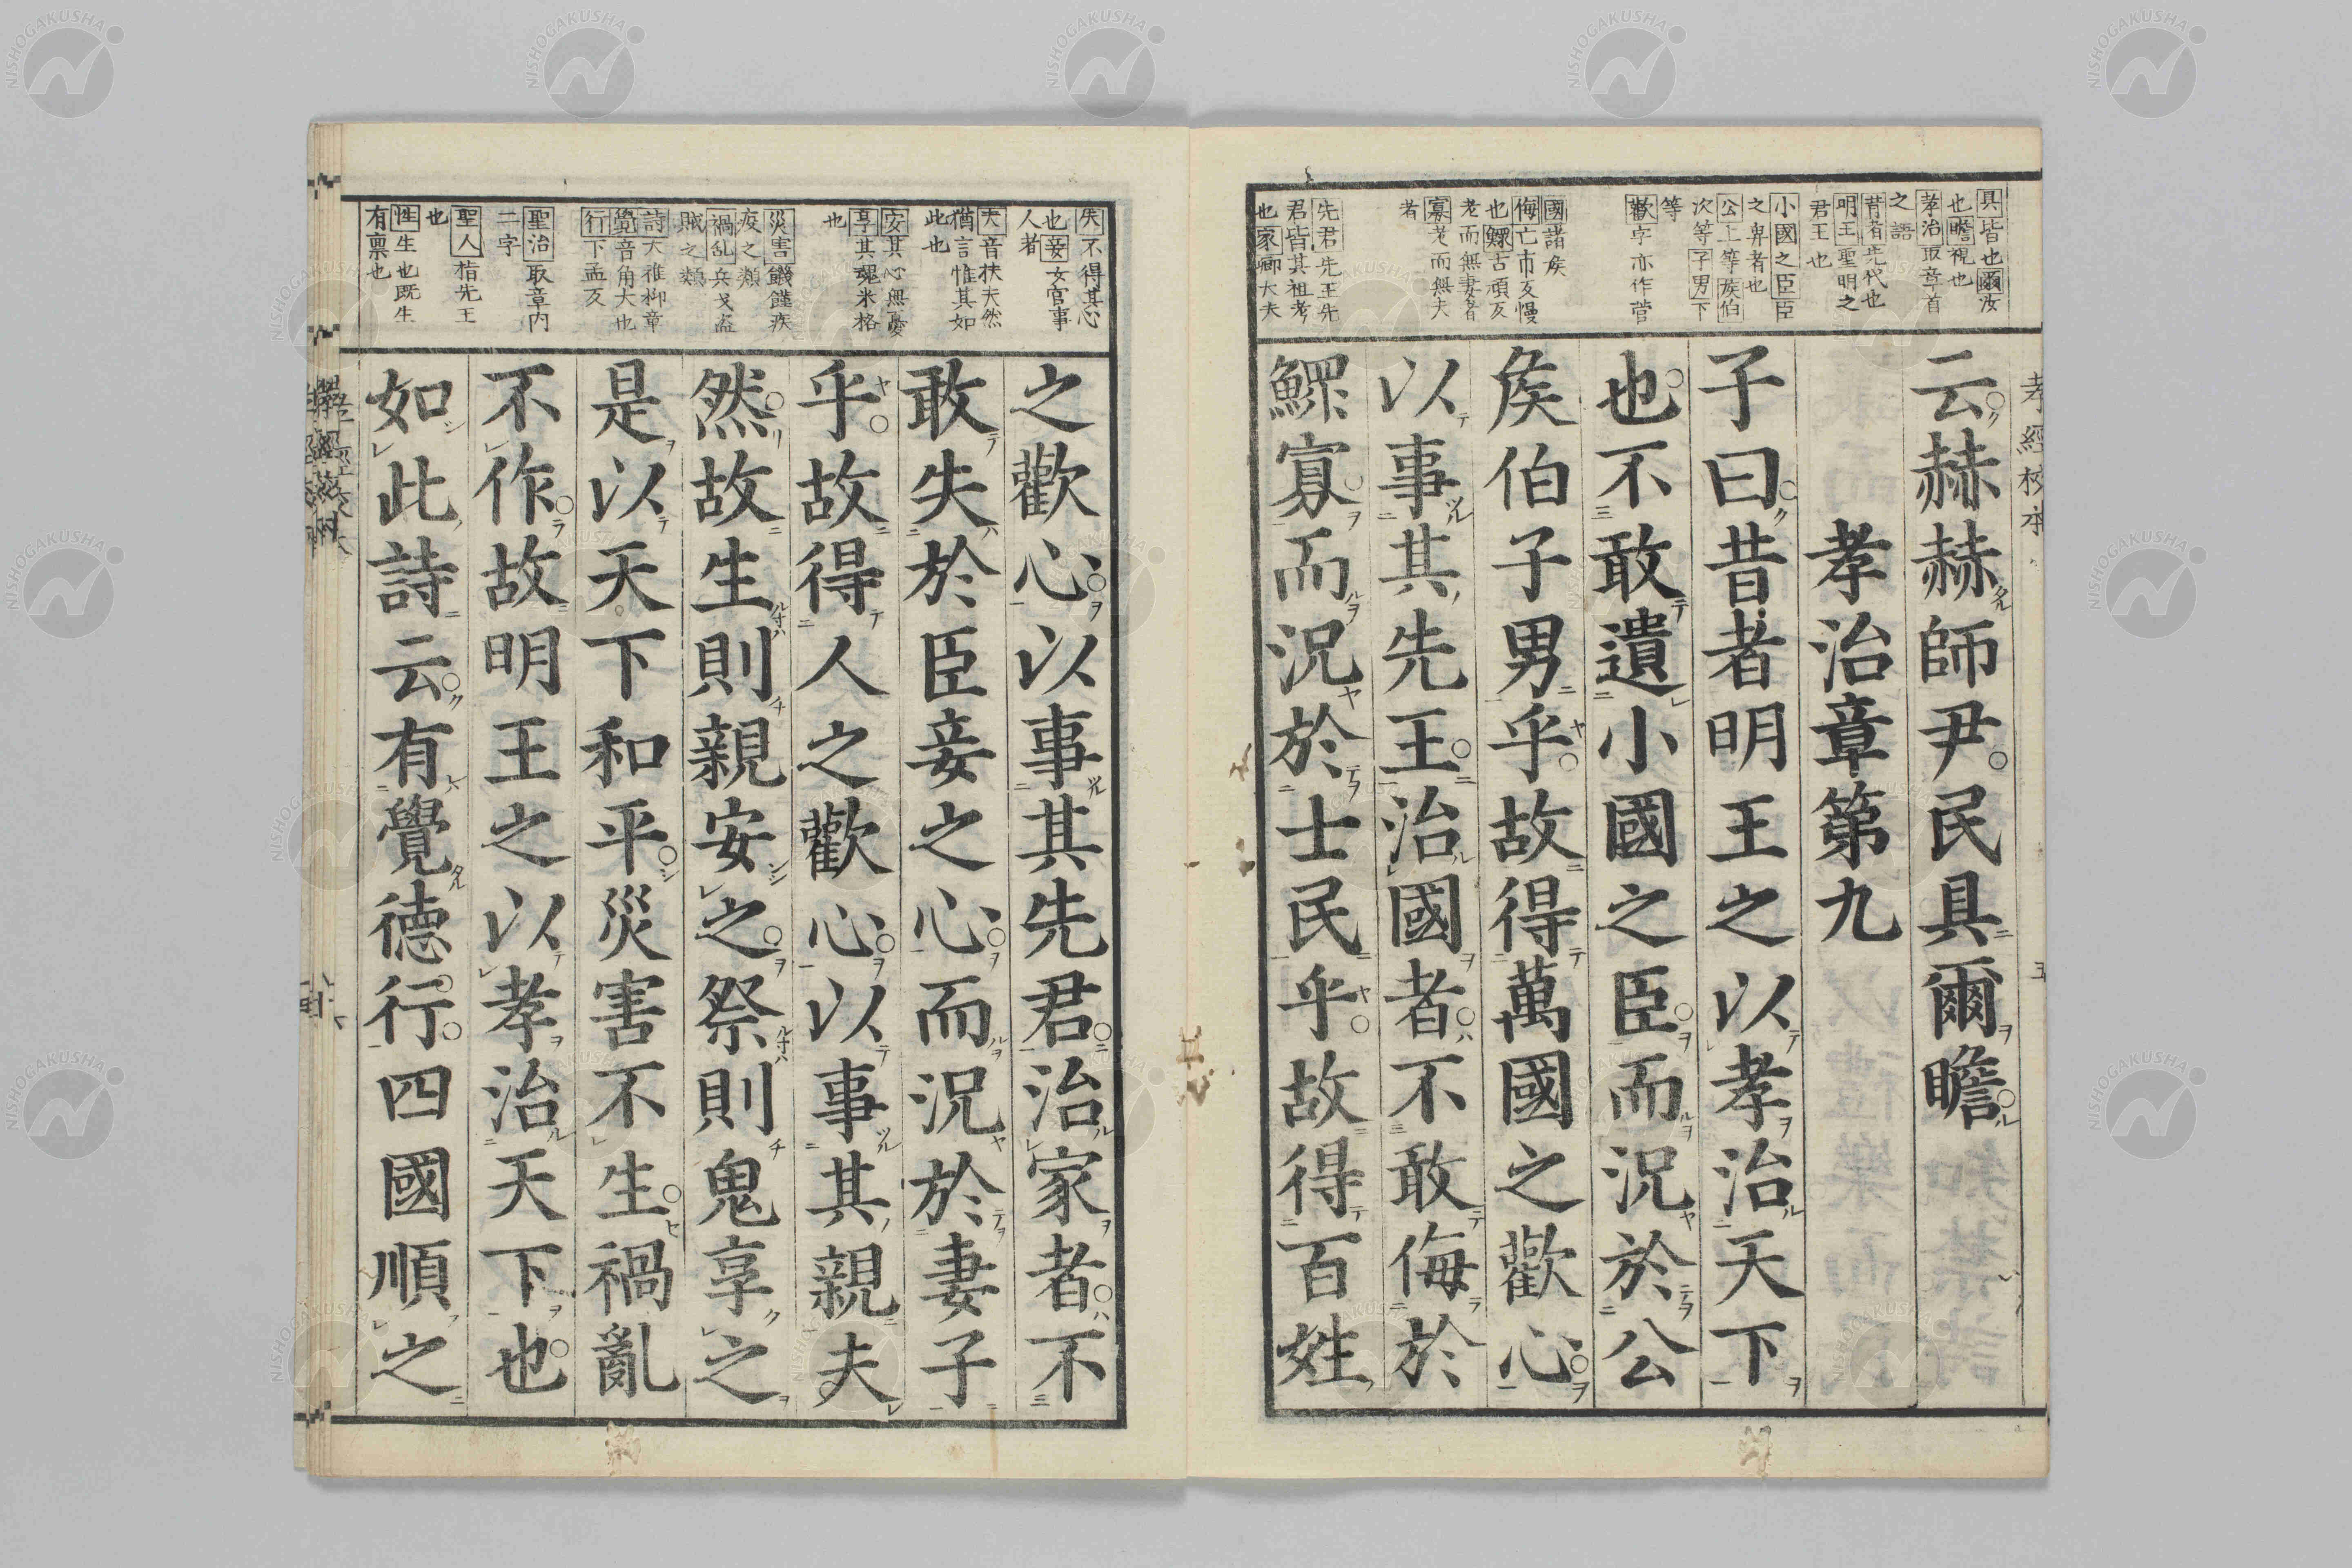 具皆也爾汝
也瞻視也
孝治取章首
之語
昔者先代也
明王聖明之
君王也
小國之臣臣
之卑者也
公上等侯伯
次等子男下
等
歡字亦作懽
國諸侯
侮亡甫反慢
也鰥古頑反
老而無妻者
寡老而無夫
者
先君先王先
君皆其祖考
也家卿大夫
云赫赫師尹民具爾瞻
孝治章第九
子曰昔者明王之以孝治天下
也不敢遺小國之臣而況於公
矦伯子男乎故得萬國之歡心
以事其先王治國者不敢侮於
鰥寡而況於士民乎故得百姓
失不得其心
也妾女官事
人者
夫音扶夫然
猶言惟其如
此也
安其心無憂
享其魂来格
也
災害饑饉疾
疫之類
禍乱兵戈盗
賊之類
詩大雅抑章
覺音角大也
行下孟反
聖治取章内
二字
聖人指先王
也
性生也既生
有禀也
之歡心以事其先君治家者不
敢失於臣妾之心而況於妻子
乎故得人之歡心以事其親夫
然故生則親安之祭則鬼享之
是以天下和平災害不生禍亂
不作故明王之以孝治天下也
如此詩云有覺德行四國順之
孝經校本
五
NISHOGAKUSHA